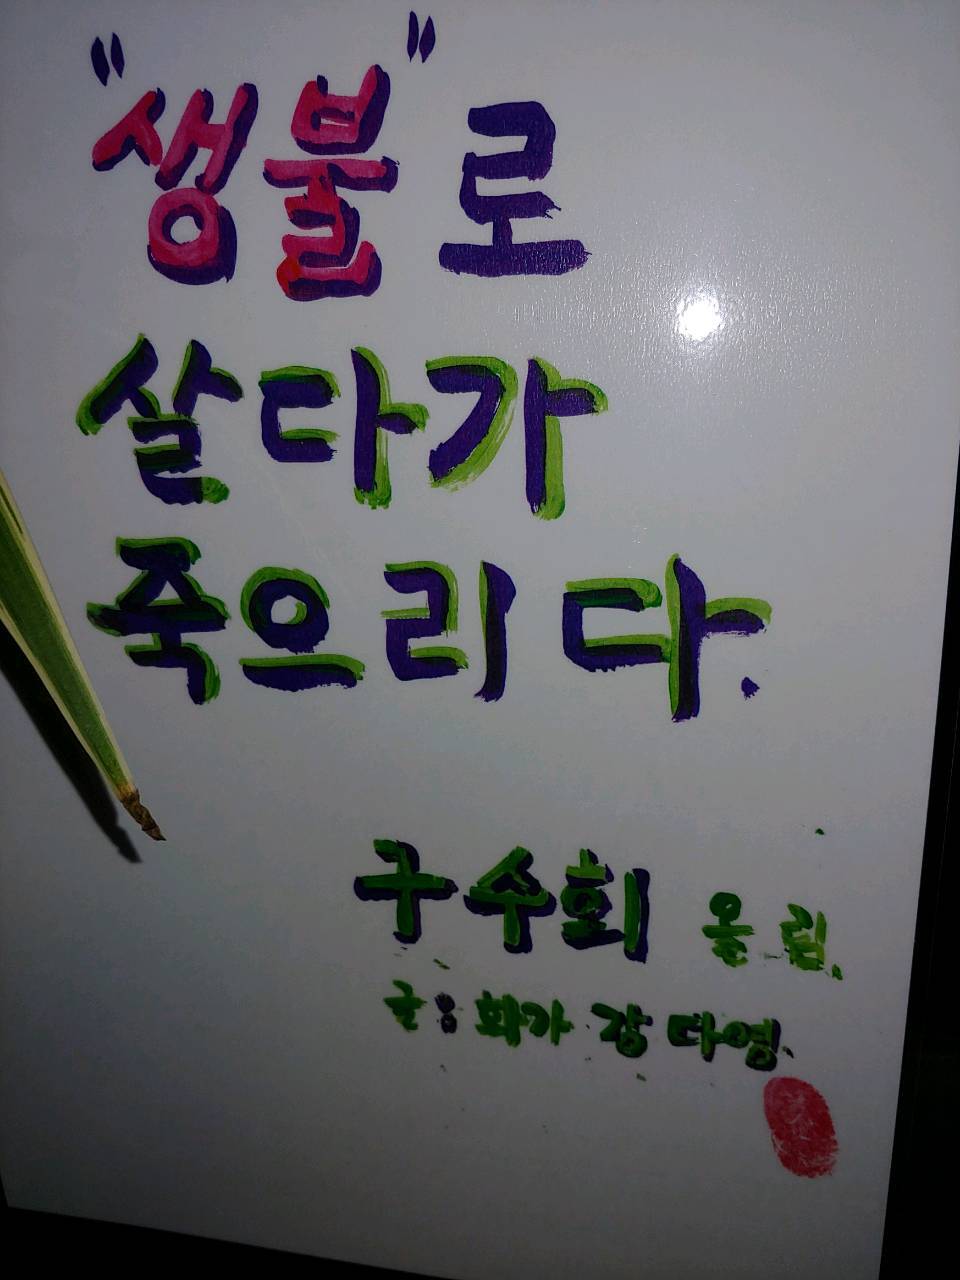 "생불"로
살다가
죽으리다.
구수회 올림.
글: 화가 강다영.